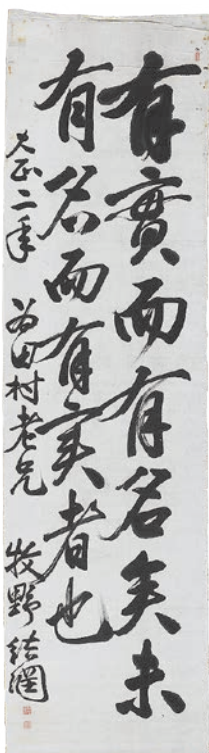 有實而有名矣未
有名而有実者也
大正二年 為田村老兄 牧野結網